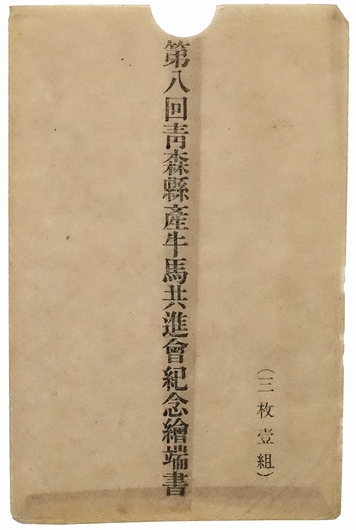 第八回靑森縣產牛馬共進會紀念繪端書
（三枚壹組）